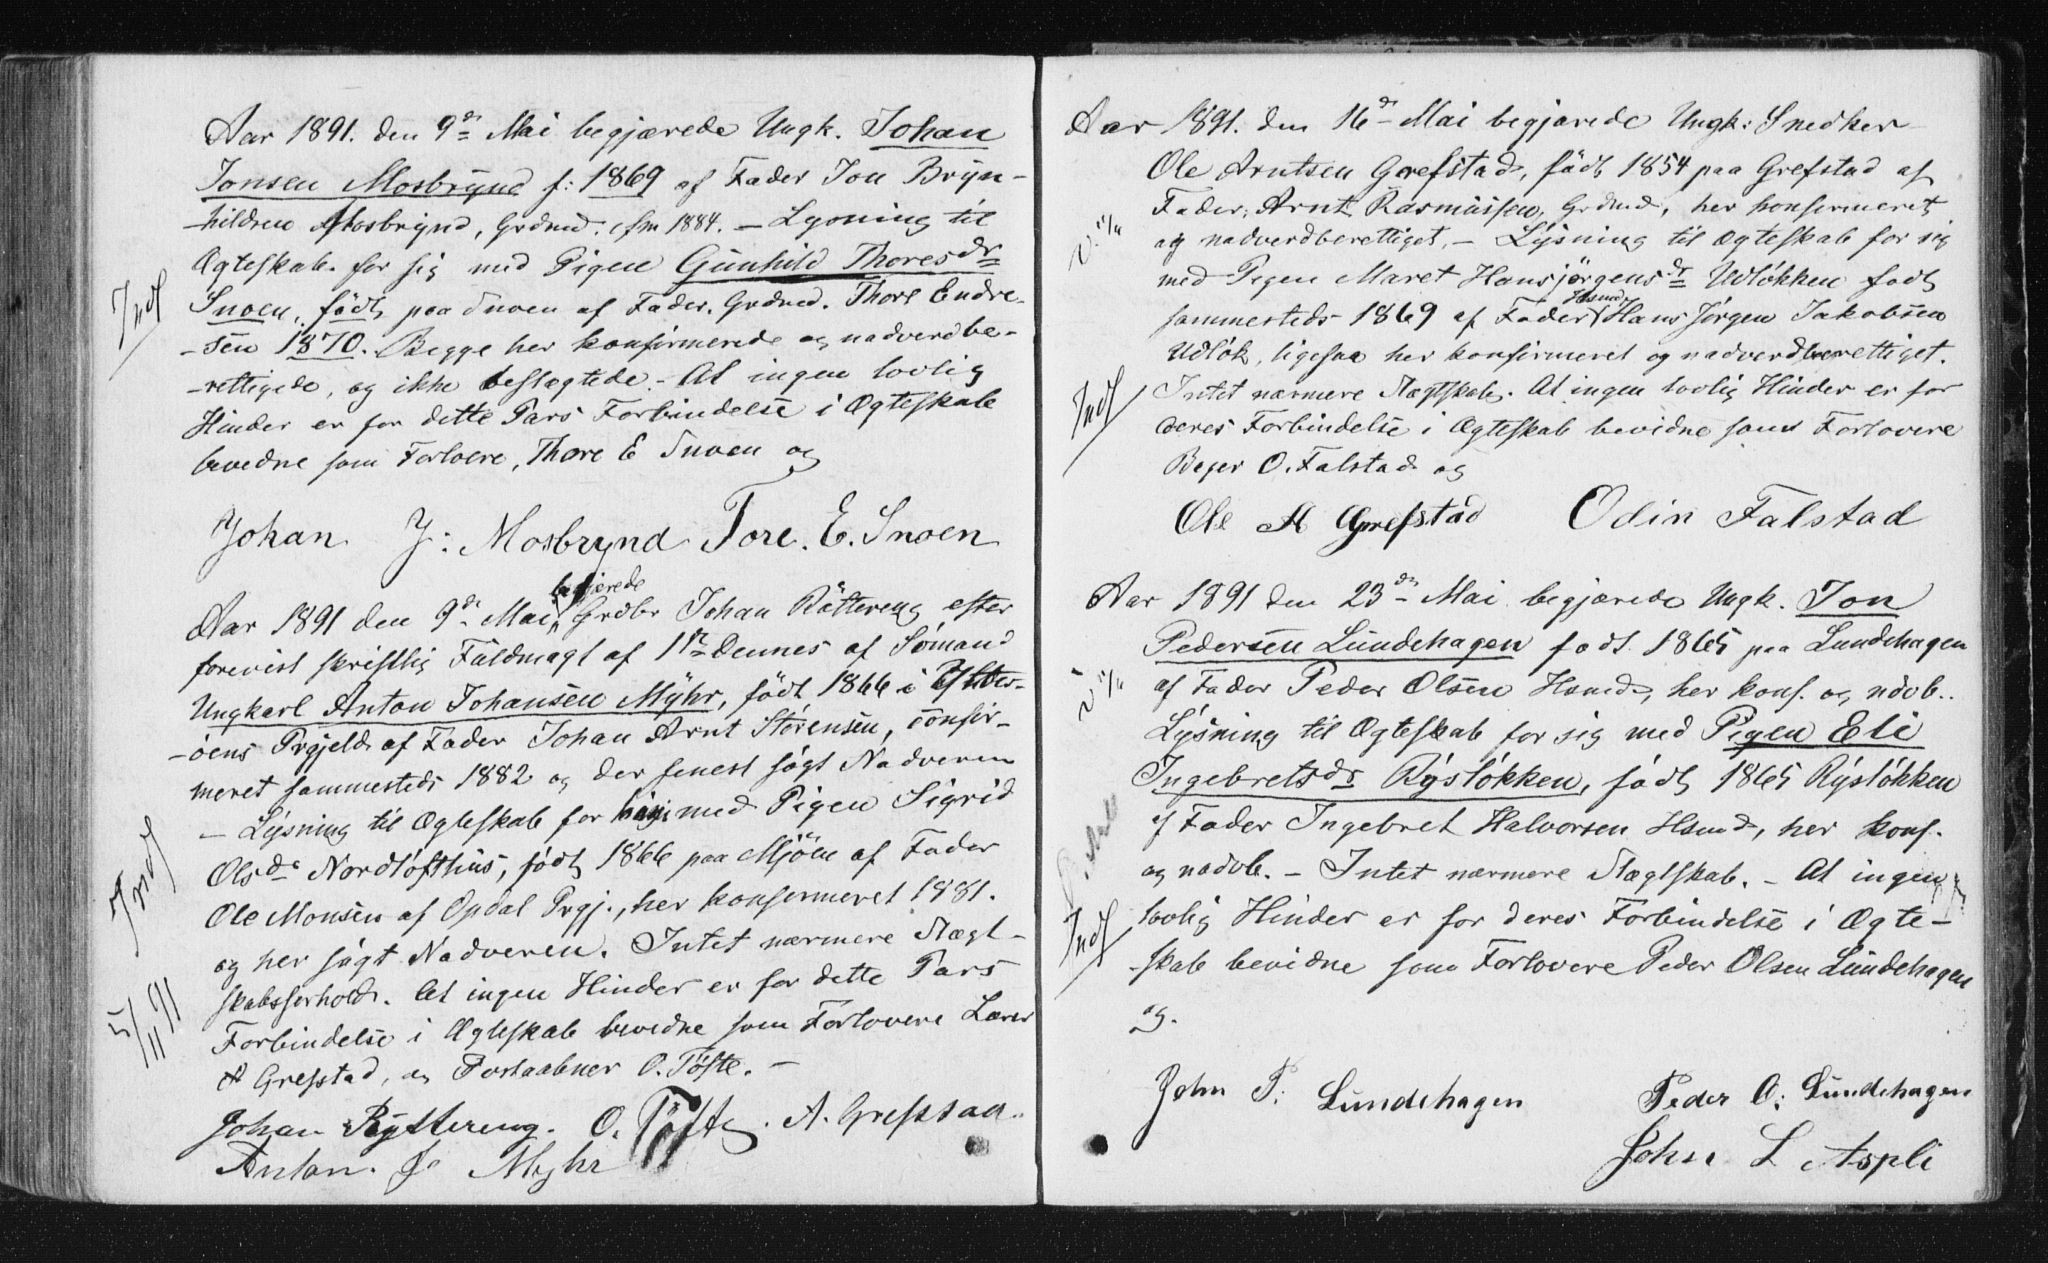 Aar 1891. den 9de Mai begjærede Ungk. Johan
Jonsen Mosbrynd f: 1869 af Fader Jon Bryn-
hildsen Mosbrynd, Grdmd. cfm 1884. — Lysning til
Ægteskab for sig med Pigen Gunhild Thoresdr
Snoen, født paa Snoen af Fader, Grdmd. Thore Endre-
-sen 1870. Begge her konfirmerede og nadverdbe-
-rettigede, og ikke beslægtede. - At ingen lovlig
Hinder er for dette Pars Forbindelse i Ægteskab
bevidne som Forlovere, Thore E Snoen og
Indf
Johan J: Mosbrynd Tore. E. Snoen
begjærede
Aar 1891 den 9de Mai Grdbr Johan Röttereng efter
forevist skriftlig Fuldmagt af 1ste Dennes af Sømand
Ungkarl Anton Johansen Myhr, født 1866 i
-öens Prgjeld af Fader Johan Arnt Störensen, confir-
meret sammesteds 1882 og der senest søgt Nadveren
— Lysning til Ægteskab for sig med Pigen Sigrid
Olsdr Nordløfthus, født 1866 paa Mjöen af Fader
Ole Monsen af Opdal Prgj., her konfirmeret 1881.
og her søgt Nadveren. Intet nærmere Slægt-
skabsforhold. At ingen Hinder er for dette Pars
Forbindelse i Ægteskab bevidne som Forlovere Lærer
A Grefstad, og Postaabner O. Töfte. —
Indf
5/11 91
Johan Ryttereng. O. Töfte. A. Grefstad.
Anton. J. Myhr
Aar 1891. den 16de Mai begjærede Ungk: Snedker
Ole Arntsen Grefstad, født 1854 paa Grefstad af
Fader, Arnt Rasmussen, Grdmd, her konfirmeret
og nadverdberettiget. — Lysning til Ægteskab for sig
med Pigen Maret Hansjørgensdr Udløkken født
Hsmd
sammesteds 1869 af Fader Hans Jörgen Jakobsen
Udløk, ligesaa her konfirmeret og nadverdberettiget.
Intet nærmere Slægtskab. At ingen lovlig Hinder er for
deres Forbindelse i Ægteskab bevidne som Forlovere
O. Falstad og
Indf
Ole A Grefstad Odin Falstad
Aar 1891 den 23de Mai begjærede Ungk. Jon
Pedersen Lundehagen født 1865 paa Lundehagen
af Fader Peder Olsen Hsmd, her konf. og ndvb..
Lysning til Ægteskab for sig med Pigen Eli
Ingebretsdr Rysløkken, født 1865 Rysløkken
af Fader Ingebret Halvorsen Hsmd, her konf.
og nadvb. — Intet nærmere Slægtskab. — At ingen
lovlig Hinder er for deres Forbindelse i Ægte-
skab bevidne som Forlovere Peder Olsen Lundehagen
og.
Indf
John P. Lundehagen Peder O: Lundehagen
John L Aspli